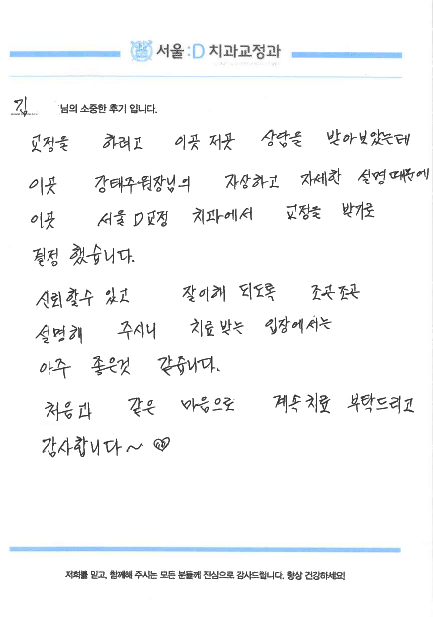 서울:D 치과교정과
김 님의 소중한 후기 입니다.
교정을 하려고 이곳 저곳 상담을 받아보았는데
이곳 강태주원장님의 자상하고 자세한 설명때문에
이곳 서울D교정 치과에서 교정을 받기로
결정 했습니다.
신뢰할수 있고 잘이해 되도록 조곤조곤
설명해 주시니 치료받는 입장에서는
아주 좋은것 같습니다.
처음과 같은 마음으로 계속치료 부탁드리고
감사합니다~
저희를 믿고, 함께해 주시는 모든 분들께 진심으로 감사드립니다. 항상 건강하세요!